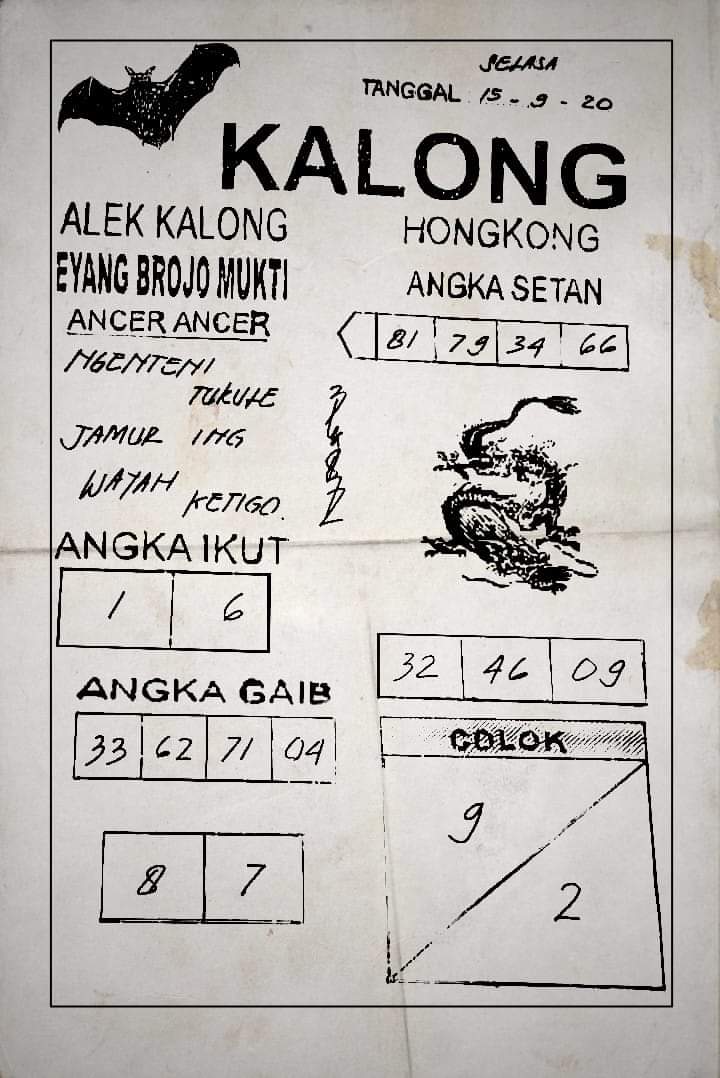 SELASA
TANGGAL 15 - 9 - 20
KALONG
ALEK KALONG
EYANG BROJO MUKTI
ANCER ANCER
NGENTENI
TUKULE
JAMUR ING
WAYAH
KETIGO.
ANGKA IKUT
1 6
ANGKA GAIB
33 62 71 04
8 7
HONGKONG
ANGKA SETAN
81 79 34 66
32 46 09
COLOK
9
2